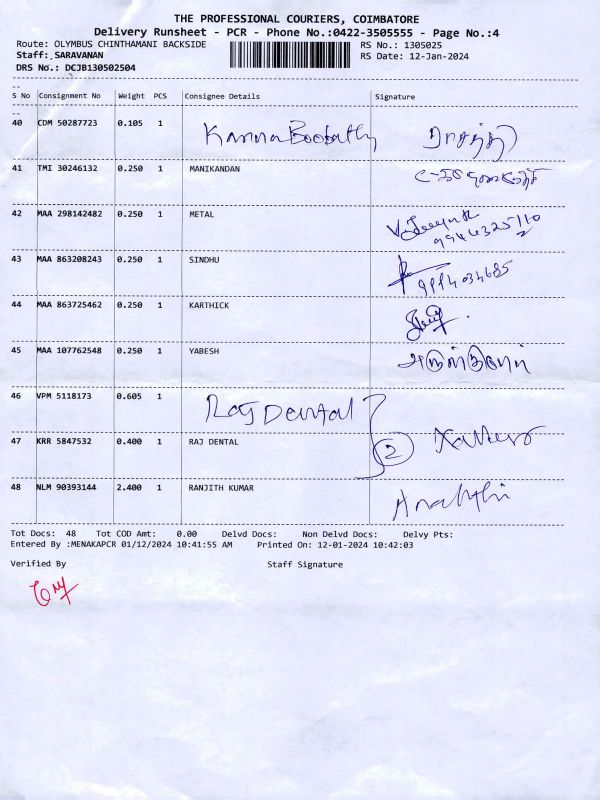 THE PROFESSIONAL COURIERS, COIMBATORE
Delivery Runsheet - PCR - Phone No.:0422-3505555 - Page No.:4
Route: OLYMBUS CHINTHAMANI BACKSIDE RS No.: 1305025
Staff: SARAVANAN RS Date: 12-Jan-2024
DRS No.: DCJB130502504
S No Consignment No Weight PCS Consignee Details Signature
40 CDM 50287723 0.105 1 Kanna Boobathy
41 TMI 30246132 0.250 1 MANIKANDAN
42 MAA 298142482 0.250 1 METAL
9944325710
43 MAA 863208243 0.250 1 SINDHU
44 MAA 863725462 0.250 1 KARTHICK
45 MAA 107762548 0.250 1 YABESH
46 VPM 5118173 0.605 1 Raj Dental
47 KRR 5847532 0.400 1 RAJ DENTAL 2
48 NLM 90393144 2.400 1 RANJITH KUMAR
Tot Docs: 48 Tot COD Amt: 0.00 Delvd Docs: Non Delvd Docs: Delvy Pts:
Entered By :MENAKAPCR 01/12/2024 10:41:55 AM Printed On: 12-01-2024 10:42:03
Verified By Staff Signature